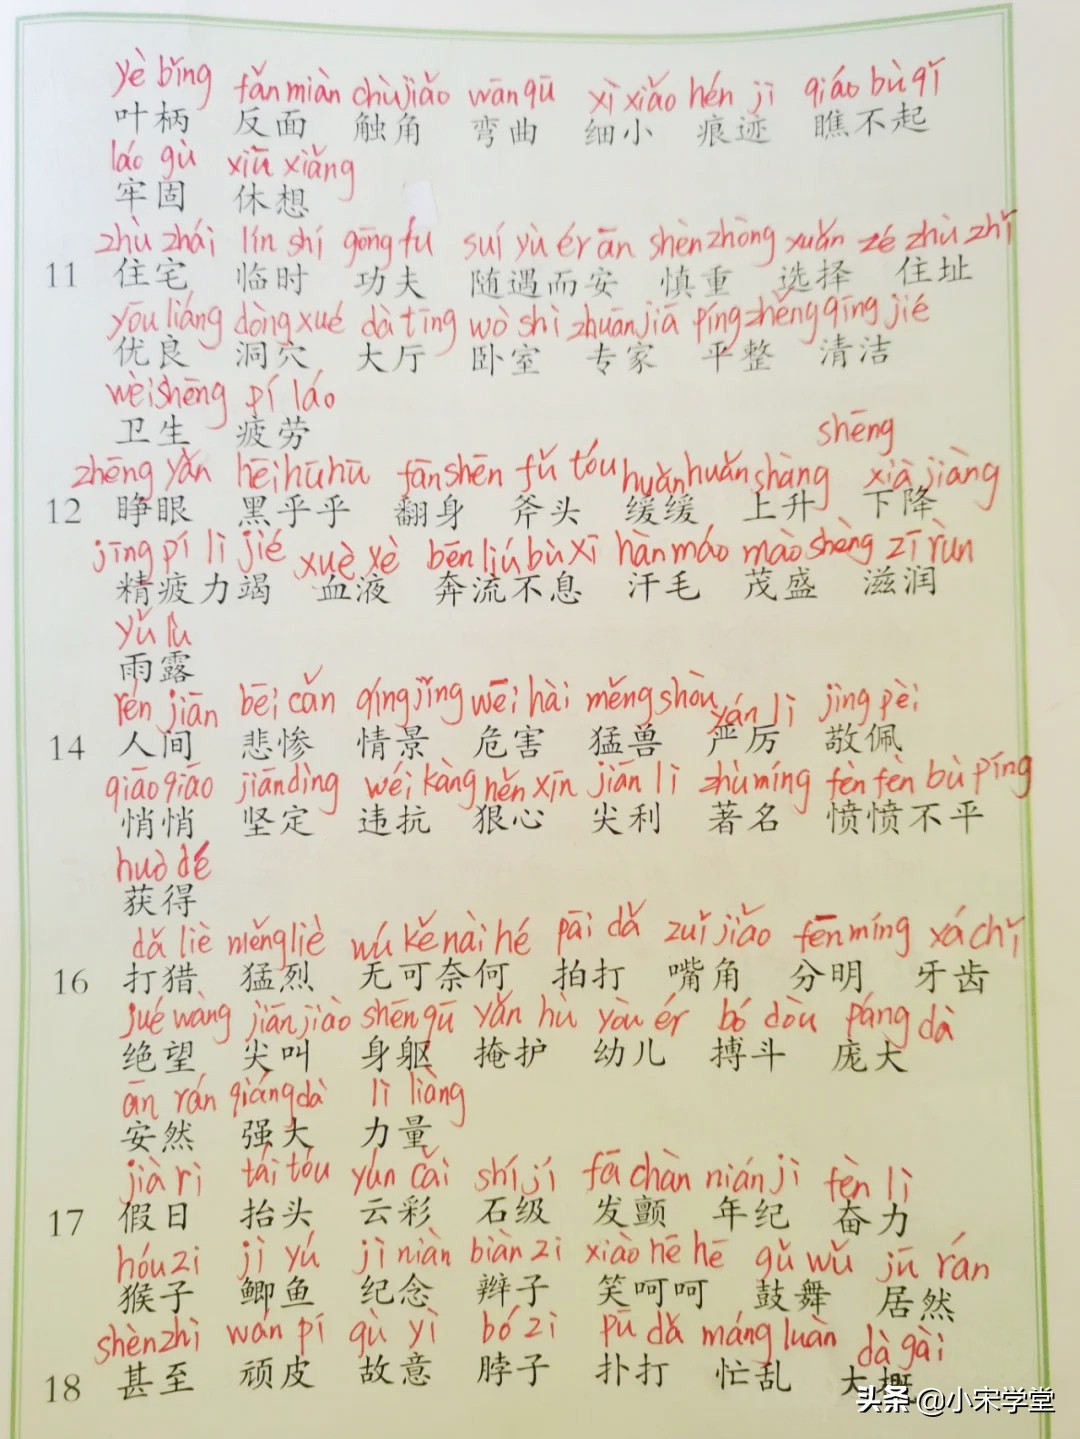 yè bǐng fǎn miàn chù jiǎo wān qū xì xiǎo hén jì qiáo bù qǐ
叶柄 反面 触角 弯曲 细小 痕迹 瞧不起
láo gù xiū xiǎng
牢固 休想
zhù zhái lín shí gōng fu suí yù ér ān shèn zhòng xuǎn zé zhù zhǐ
11 住宅 临时 功夫 随遇而安 慎重 选择 住址
yōu liáng dòng xué dà tīng wò shì zhuān jiā píng zhěng qīng jié
优良 洞穴 大厅 卧室 专家 平整 清洁
wèi shēng pí láo
卫生 疲劳
shēng
zhēng yǎn hēi hū hū fān shēn fǔ tóu huǎn huǎn shàng xià jiàng
12 睁眼 黑乎乎 翻身 斧头 缓缓 上升 下降
jīng pí lì jié xuè yè bēn liú bù xī hàn máo mào shèng zī rùn
精疲力竭 血液 奔流不息 汗毛 茂盛 滋润
yǔ lù
雨露
rén jiān bēi cǎn qíng jǐng wēi hài měng shòu yán lì jìng pèi
14 人间 悲惨 情景 危害 猛兽 严厉 敬佩
qiāo qiāo jiān dìng wéi kàng hěn xīn jiān lì zhù míng fèn fèn bù píng
悄悄 坚定 违抗 狠心 尖利 著名 愤愤不平
huò dé
获得
dǎ liè měng liè wú kě nài hé pāi dǎ zuǐ jiǎo fēn míng yá chǐ
16 打猎 猛烈 无可奈何 拍打 嘴角 分明 牙齿
jué wàng jiān jiào shēn qū yǎn hù yòu ér bó dòu páng dà
绝望 尖叫 身躯 掩护 幼儿 搏斗 庞大
ān rán qiáng dà lì liàng
安然 强大 力量
jià rì tái tóu yún cǎi shí jí fā chàn nián jì fèn lì
17 假日 抬头 云彩 石级 发颤 年纪 奋力
hóu zi jì yú jì niàn biàn zi xiào hē hē gǔ wǔ jū rán
猴子 鲫鱼 纪念 辫子 笑呵呵 鼓舞 居然
shèn zhì wán pí gù yì bó zi pū dǎ máng luàn dà gài
18 甚至 顽皮 故意 脖子 扑打 忙乱 大概
头条 @小宋学堂